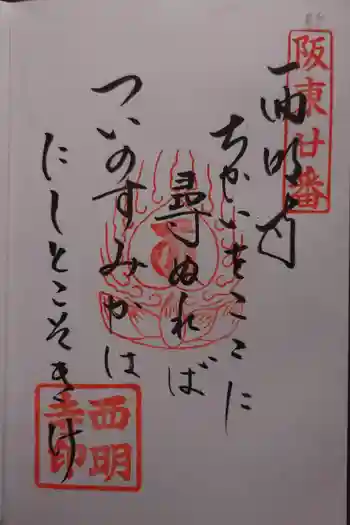 阪東廿番
西明寺
ちかいをはここに
尋ぬれば
ついのすみかは
にしとこそきけ
西明
寺印